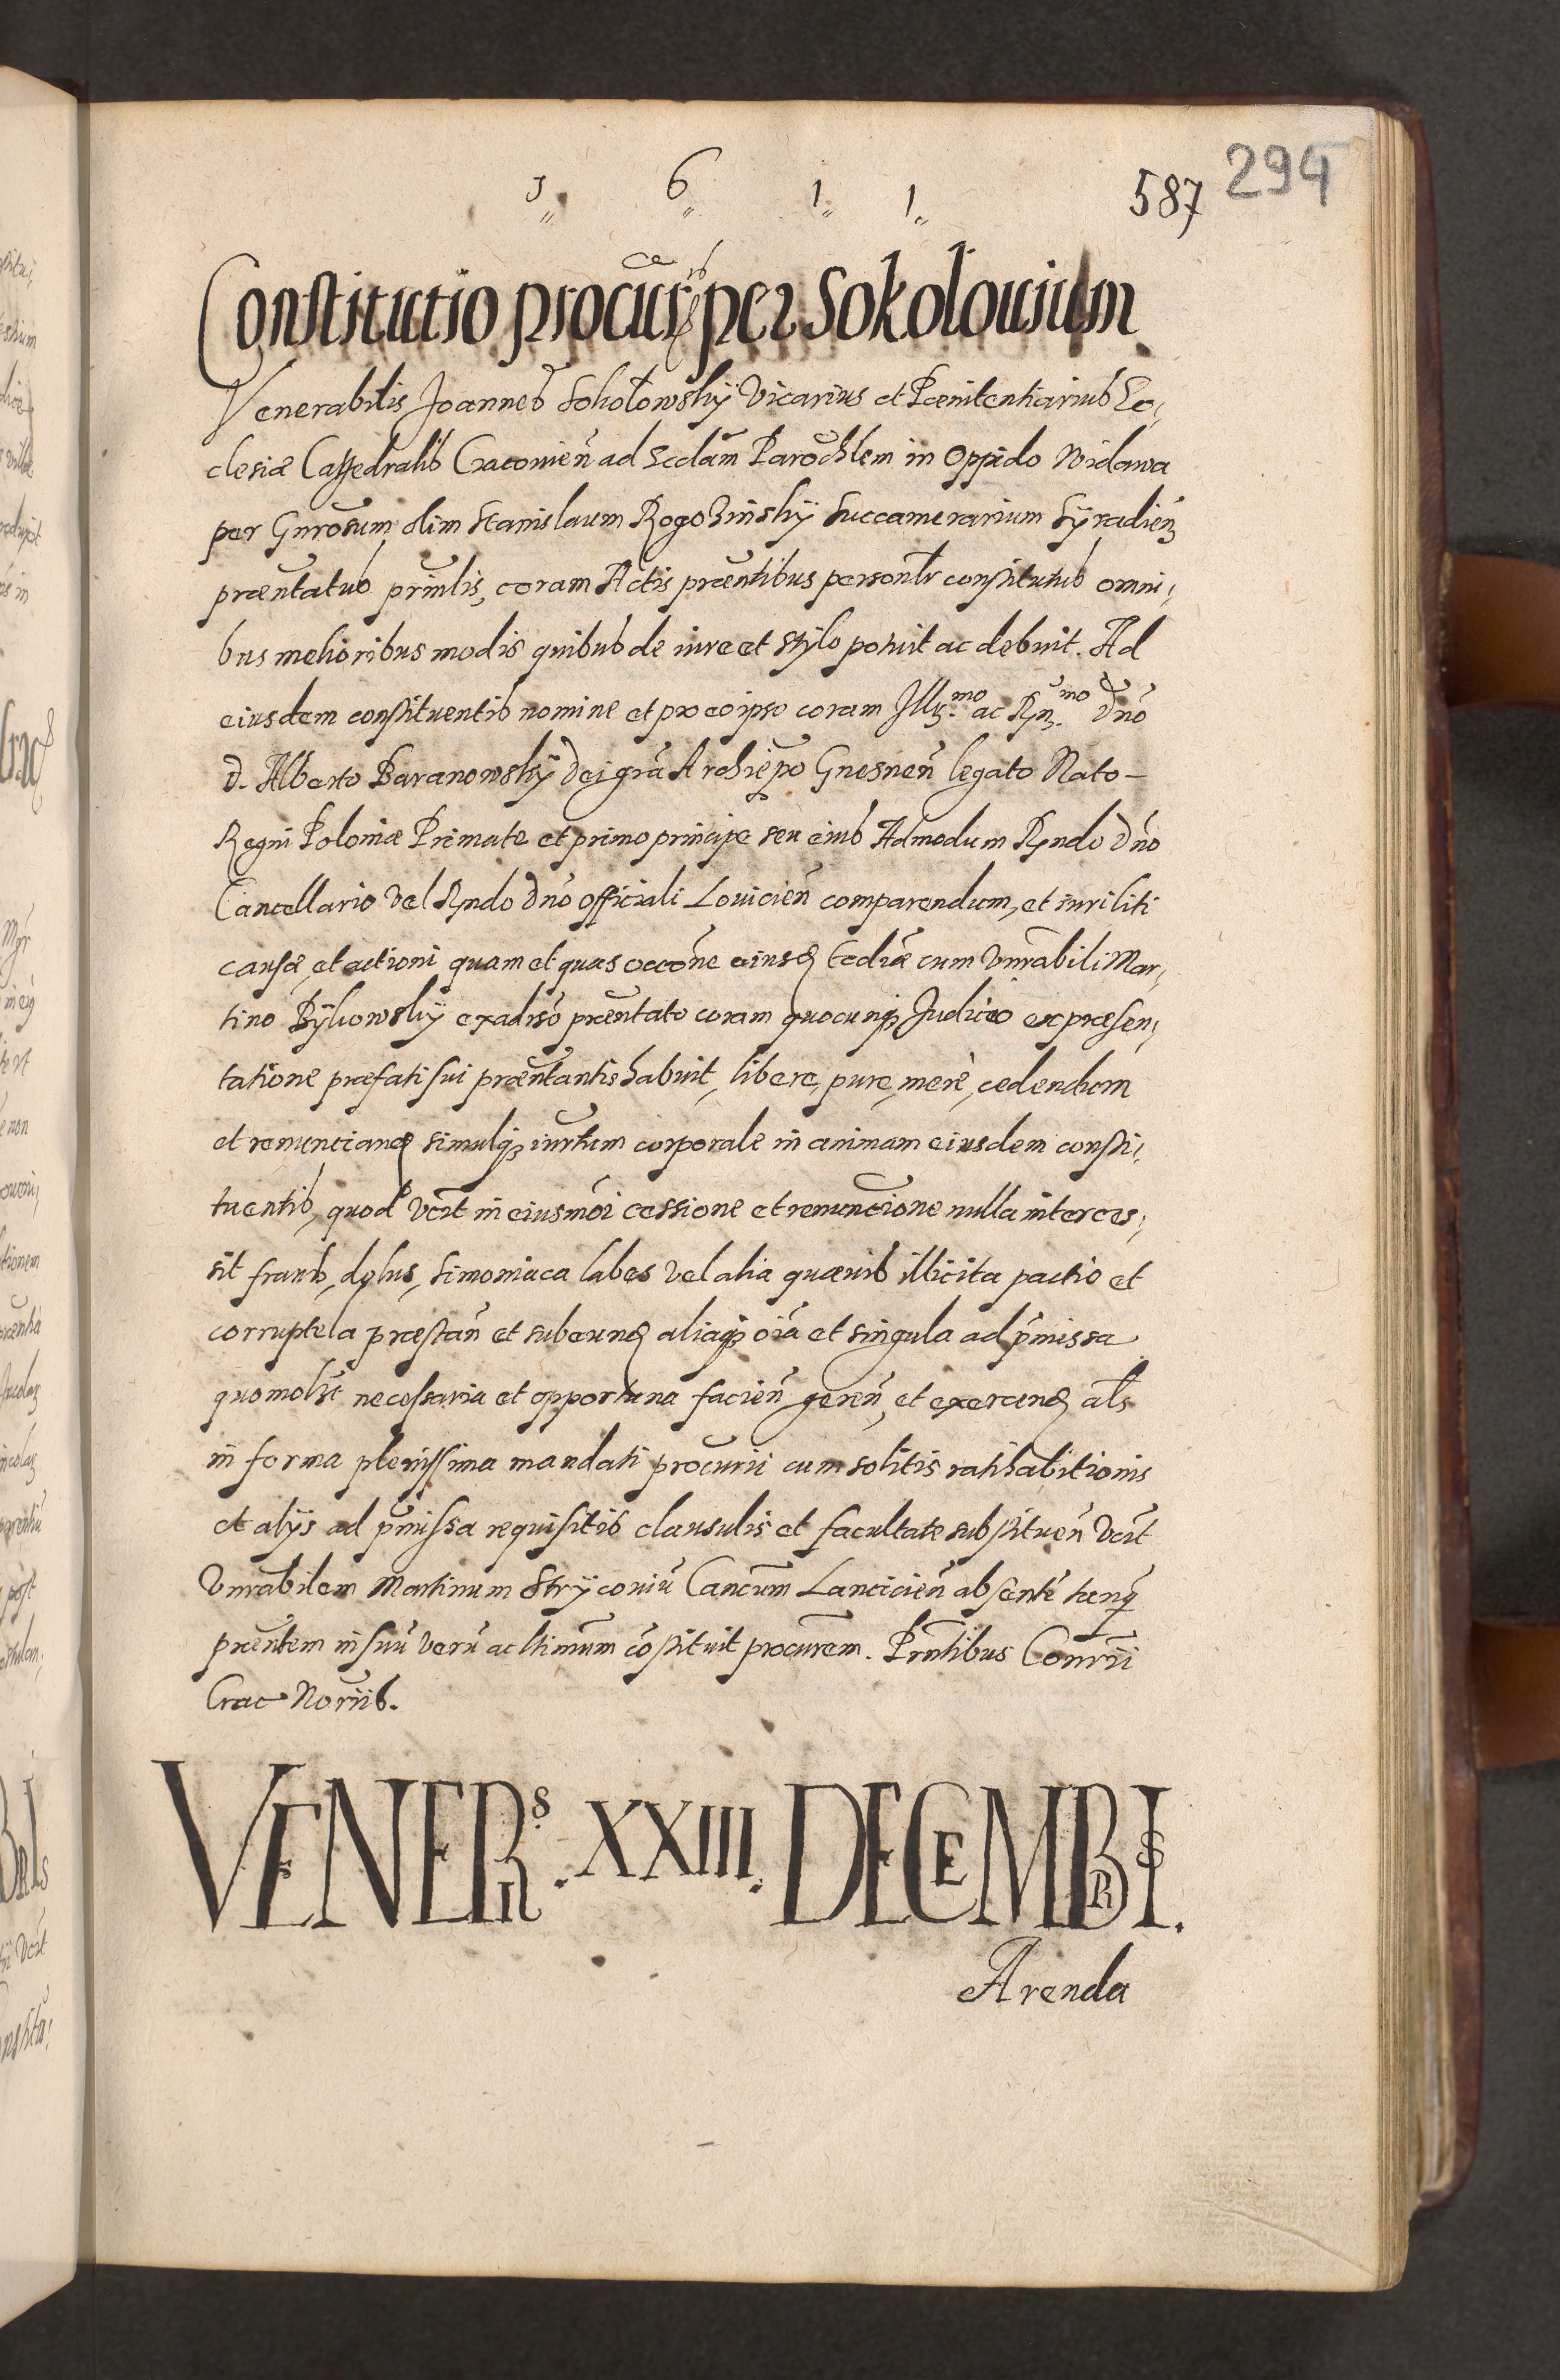 1 6 1 1
587 294
Constitutio procuris per Sokolouium
Venerabilis Joannes Sokołowskÿ Vicarius et Pœnitentiarius Ec,
clesiæ Cathedralis Cracouien̄ ad Ecclām Parochlem in Oppido Widawa
per Gnrosum olim Stanislaum Rogozinskÿ Succamerarium Sÿradien̄
præntatus prinlis, coram Actis præntibus personlr constitutus omni,
bus melioribus modis quibus de iure et stÿlo potuit ac debuit. Ad
eiusdem constituentis nomine et pro eo ipso coram Illmo ac Rmo Dn̄o
D. Alberto Baranowskÿ Dei gr̄a Archiep̄o Gnesnen̄ legato Nato
Regni Poloniæ Primate et primo principe seu eius Admodum Rndo Dn̄o
Cancellario Vel Rndo Dn̄o Officiali Louicien̄ comparendum, et iuri liti
causæ, et actioni quam et quas occōne eiusd Ecclīæ cum Vnrabili Mar,
tino Bÿkowskÿ ex adisō præntato coram quocunq Judicio ex præsen,
tatione præfati sui præntantis habuit, libere, pure, merè, cedendum
et renunciand simulq iurtum corporale in animam eiusdem consti,
tuentis, quod Vcrt in eiusmōi cessione et renunctione nulla interces,
sit fraus, dolus, simoniaca labes Vel alia quæuis illicita pactio et
corruptela præstan̄ et subeund aliaq oīa et singula ad p̄missa
quomolbt necessaria et opportuna facien̄ geren̄, et exercend als
in forma plenissima mandati procurii cum solitis ratihabitionis
et alÿs ad p̄missa requisitis clausulis et facultate substituen̄ Vcrt
Vnrabilem Martinum Strÿcouiū Cancum Lancicien̄ absentē tanq
præntem in suū verū ac ltimum cōstituit procurem. Prntibus Conrii
Crac Noriis.
VENERIS. XXIII. DECEMBRIS.
Arenda